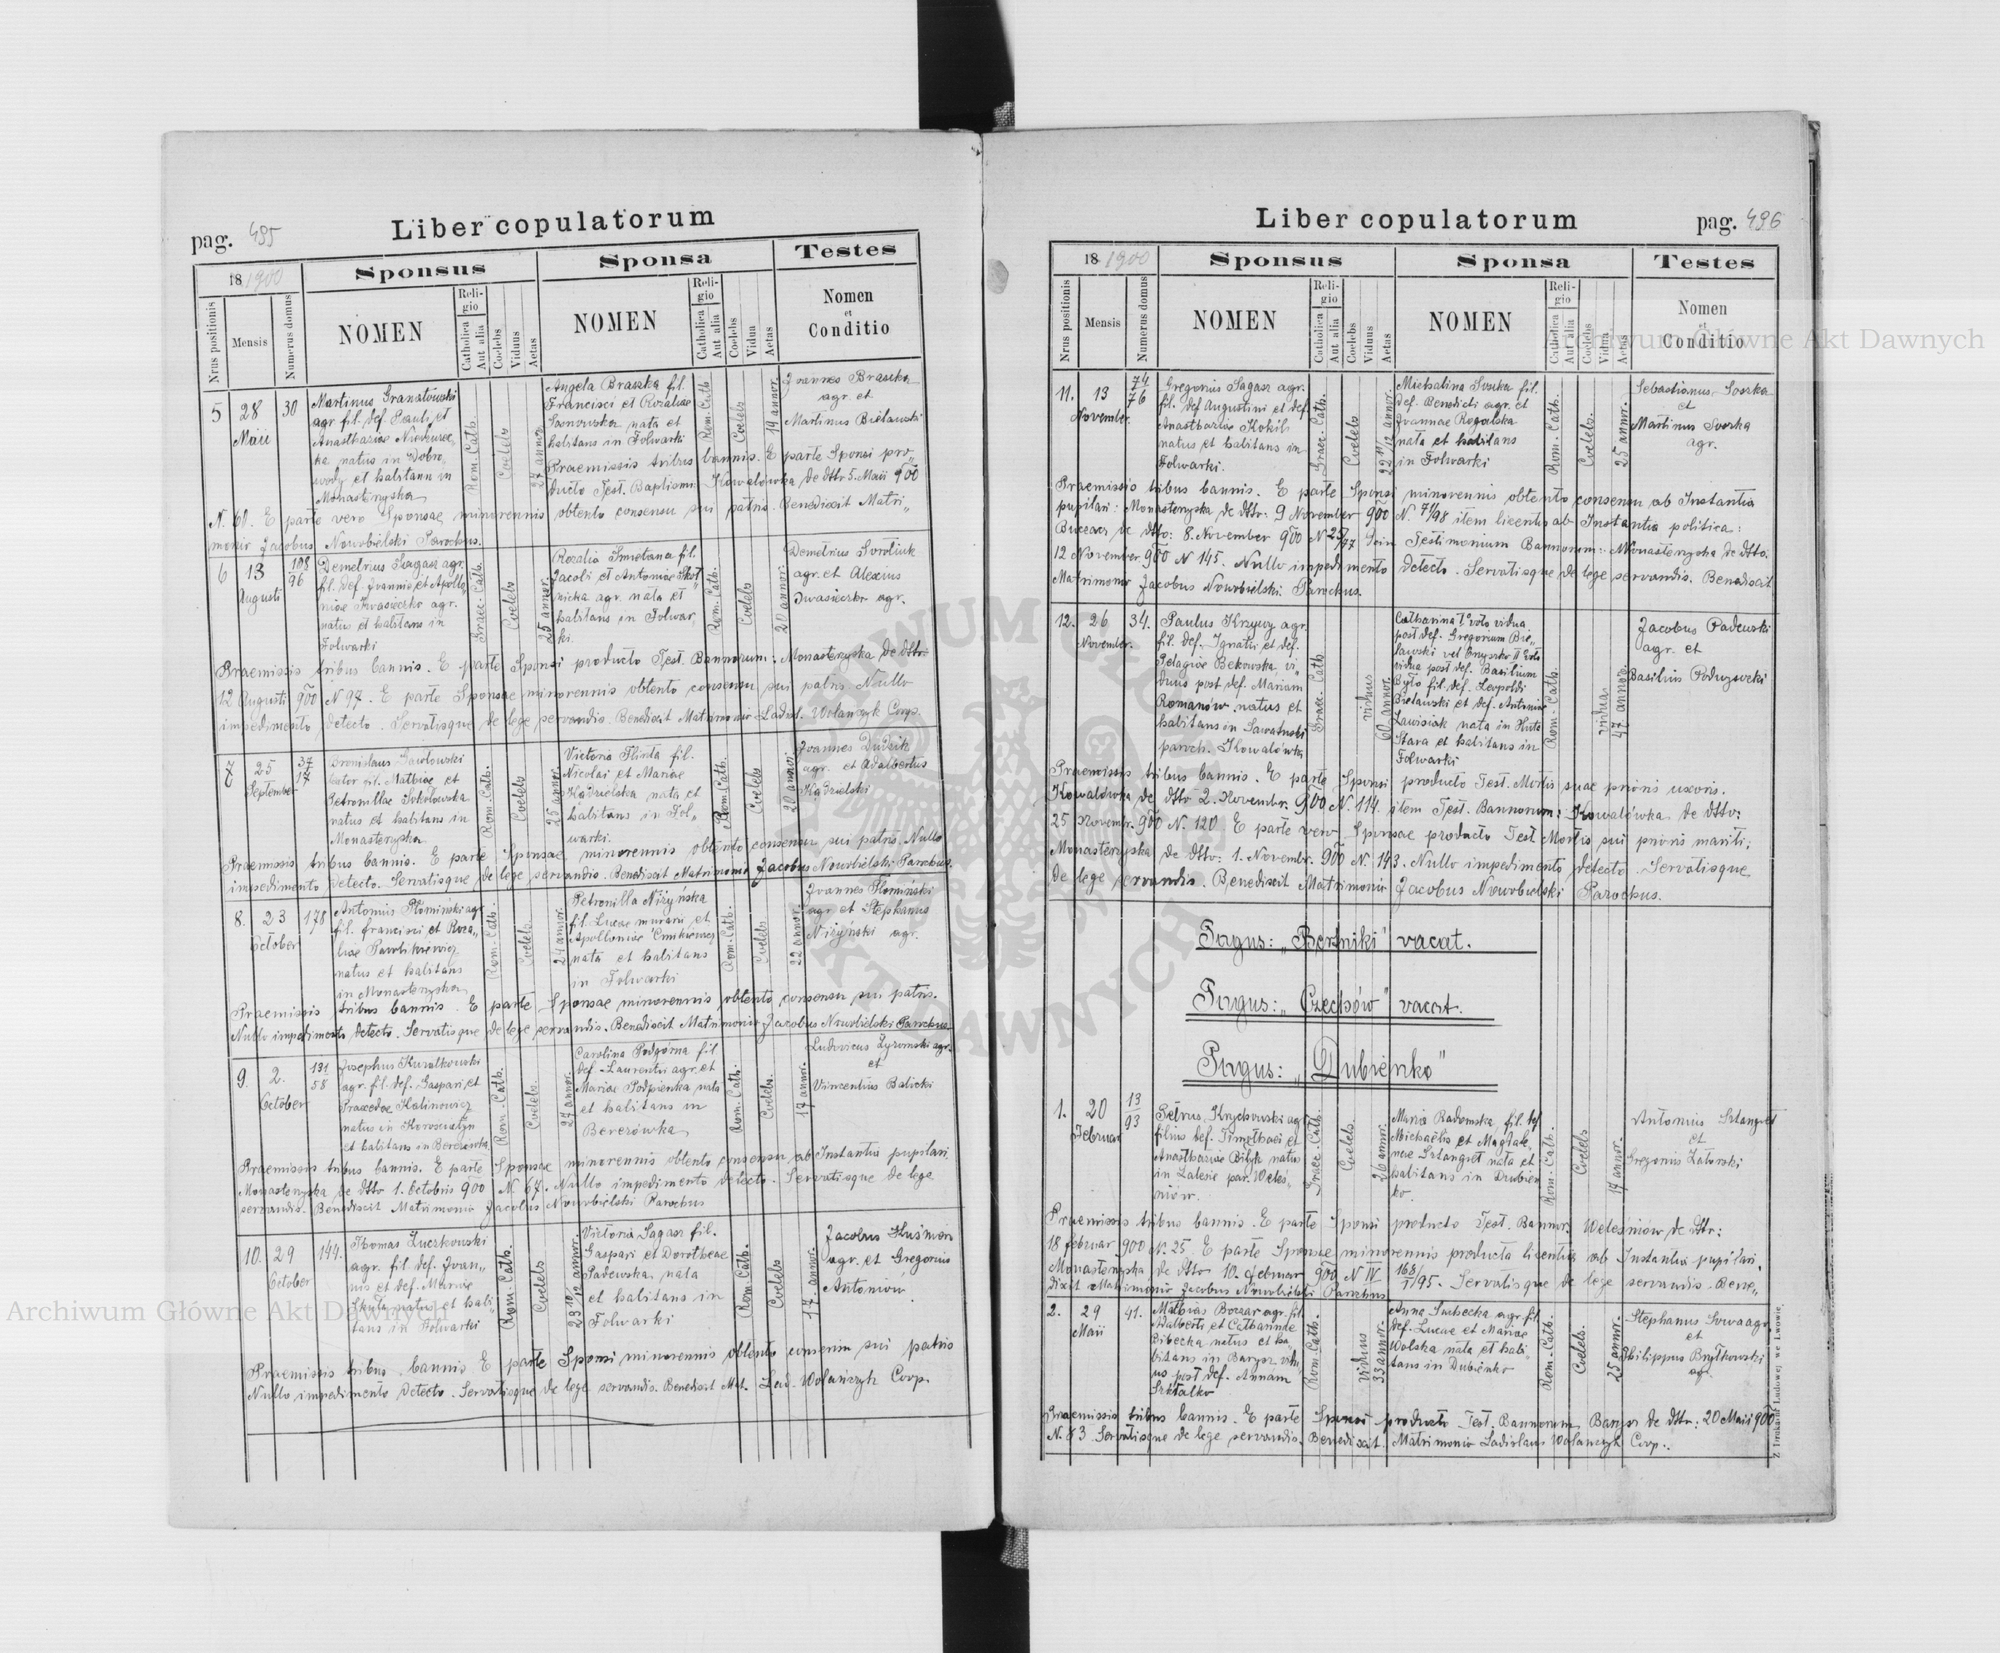 pag. 495
Liber copulatorum
18 1900
Sponsus
Sponsa
Testes
Nrus positionis
Mensis
Numerus domus
NOMEN
Religio
Catholica
Aut alia
Coelebs
Viduus
Aetas
NOMEN
Religio
Catholica
Aut alia
Coelebs
Vidua
Aetas
Nomen
et
Conditio
5
28
Maii
30
Martinus Granatowski
agr fil. def. Pauli et
Anasthasiae
natus in Dobro
wody et habitans in
Monasterzyska
Rom. Cath.
Coelebs
27 annor.
Angela Braszka fil.
Francisci et Rosaliae
Sosnowska nata et
habitans in Folwarki
Rom. Cath.
Coelebs
19 annor.
Joannes Braszka
agr. et
Martinus Bielawski
Praemissis tribus bannis. E parte Sponsi pro„
ducto Test. Baptismi: Kowalówka de dtto 5. Maii 900
N. 60. E parte vero Sponsae minorennis obtento consensu sui patris. Benedixit Matri„
monio Jacobus Nowobielski Parochus.
6
13
Augusti
108
96
Demetrius Sagasz agr.
fil. def. Joannis et Apollo„
niae Iwasieczko agr.
natus et habitans in
Folwarki
Graec. Cath.
Coelebs
25 annor.
Rozalia Smetana fil.
Jacobi et Antoniae Skot„
nicka agr. nata et
habitans in Folwar„
ki.
Rom. Cath.
Coelebs
20 annor.
Demetrius Soroliuk
agr. et Alexius
Iwasieczko agr.
Praemissis tribus bannis. E parte Sponsi producto Test. Bannorum: Monasterzyska de dtto:
12 Augusti 900 N 97. E parte Sponsae minorennis obtento consensu sui patris. Nullo
impedimento detecto. Servatisque de lege servandis. Benedixit Matrimonio Ladisl. Wolańczyk Coop.
7
25
September
37
17
Bronislaus Sacolowski
fil. Mathiae et
Petronillae Sokołowska
natus et habitans in
Monasterzyska
Rom. Cath.
Coelebs
25 annor.
Victoria Flinta fil.
Nicolai et Mariae
Kądzielska nata et
habitans in Fol„
warki.
Rom. Cath.
Coelebs
20 annor.
Joannes Dudzik
agr. et Adalbertus
Kądzielski
Praemissis tribus bannis. E parte Sponsae minorennis obtento consensu sui patris. Nullo
impedimento detecto. Servatisque de lege servandis. Benedixit Matrimonio Jacobus Nowobielski Parochus.
8.
23
October
178
Antonius Płomiński agr.
fil. francisci et Roza„
liae Pawlikiewicz
natus et habitans
in Monasterzyska
Rom. Cath.
Coelebs
24 annor.
Petronilla Niżyńska
fil. Lucae murarii et
Apolloniae
nata et habitans
in Folwarki
Rom. Cath.
Coelebs
22 annor.
Joannes Płomiński
agr et Stephanus
Niżyński agr.
Praemissis tribus bannis. E parte Sponsae minorennis obtento consensu sui patris.
Nullo impedimento detecto. Servatisque de lege servandis. Benedixit Matrimonio Jacobus Nowobielski Parochus
9.
2.
October
131
58
Josephus Kuratkowski
agr. fil. def. Gaspari et
Praxedae Kalinowicz
natus in Korościatyn
et habitans in Berezówka
Rom. Cath.
Coelebs
27 annor.
Carolina Podgórna fil.
def. Laurentii agr. et
Mariae Podpienka nata
et habitans in
Berezówka
Rom. Cath.
Coelebs
17 annor.
Ludovicus Żyromski agr.
et
Vincentius Balicki
Praemissis tribus bannis. E parte Sponsae minorennis obtento consensu ab Instantia pupilari
Monasterzyska de dtto 1. Octobris 900 N 67. Nullo impedimento detecto. Servatisque de lege
servandis. Benedixit Matrimonio Jacobus Nowobielski Parochus
10.
29
October
144.
Thomas Luczkowski
agr. fil. def. Joan„
nis et def. Mariae
Skuła natus et habi„
tans in Folwarki
Rom. Cath.
Coelebs
23 10/12 annor.
Victoria Sagasz fil.
Gaspari et Dorotheae
Padewska nata
et habitans in
Folwarki
Rom. Cath.
Coelebs
17. annor.
Jacobus Kuśmierz
agr. et Gregorius
Antoniów.
Praemissis tribus bannis. E parte Sponsi minorennis obtento consensu sui patris
Nullo impedimento detecto. Servatisque de lege servandis. Benedixit Mat. Lad. Wolańczyk Coop.
Liber copulatorum
pag. 496
18 1900
Sponsus
Sponsa
Testes
Nrus positionis
Mensis
Numerus domus
NOMEN
Religio
Catholica
Aut alia
Coelebs
Viduus
Aetas
NOMEN
Religio
Catholica
Aut alia
Coelebs
Vidua
Aetas
Nomen
et
Conditio
11.
13
November.
74
76
Gregorius Sagasz agr.
fil. def Augustini et def.
Anasthasiae Kokil
natus et habitans in
Folwarki.
Graec. Cath.
Coelebs
22 11/12 annor.
Michalina Soska fil.
def. Benedicti agr. et
Joannae Rogalska
nata et habitans
in Folwarki
Rom. Cath.
Coelebs.
25 annor.
Sebastianus Soszka
et
Martinus Soszka
agr.
Praemissis tribus bannis. E parte Sponsi minorennis obtento consensu ab Instantia
pupilari: Monasterzyska de dtto: 9 November 900 N. 71/98 item licentia ab Instantia politica:
Buczacz de dtto: 8. November 900 N 25/77 dein Testimonium Bannorum: Monasterzyska de dtto.
12 November. 900 N 145. Nullo impedimento detecto. Servatisque de lege servandis. Benedixit
Matrimonio Jacobus Nowobielski Parochus.
12.
26
November.
34.
Paulus Krzywy agr.
fil. def. Ignatii et def.
Pelagiae Bekowska vi„
duus post def. Mariam
Romanów natus et
habitans in Sawaluski
paroch. Kowalówka
Graec. Cath
viduus
60 annor.
Catharina 1° voto vidua
post def. Gregorium Bie„
lawski vel Onyszko II voto
vidua post def. Basilium
Było fil. def. Leopoldi
Bielawski et def. Antoniae
Ławisiak nata in Huta
Stara et habitans in
Folwarki
Rom. Cath.
vidua
47 annor.
Jacobus Padewski
agr. et
Basilius
Praemissis tribus bannis. E parte Sponsi producto Test. Mortis suae prioris uxoris.
Kowalówka de dtto 2. Novembr. 900 N. 114. item Test. Bannorum: Kowalówka de dtto:
25 Novembr. 900 N. 120 E parte vero Sponsae producto Test Mortis sui prioris mariti;
Monasterzyska de dtto: 1. Novembr. 900 N. 143. Nullo impedimento detecto. Servatisque
de lege servandis. Benedixit Matrimonio Jacobus Nowobielski Parochus.
Pagus: „Bertniki” vacat.
Pagus: „Czechów” vacat.
Pagus: „Dubienko”
1.
20
Februar
13
93
Petrus Krychowski agr
filius def. Timothaei et
Anasthasiae Bilyk natus
in Zalesie par. Weleś„
niów.
Graec. Cath.
Coelebs.
26 annor.
Maria Radomska fil. def
Michaëlis et Magdale„
nae Sztangret nata et
habitans in Dubien
ko.
Rom. Cath.
Coelebs
17 annor.
Antonius Sztangret
et
Gregorius Zatorski
Praemissis tribus bannis. E parte Sponsi producto Test. Bannor: Weleśniów de dtto:
18 februar 900 N. 25. E parte Sponsae minorennis producta licentia ab Instantia pupilari.
Monasterzyska de dtto 10. februar 900 N IV 168/1/95. Servatisque de lege servandis. Bene„
dixit Matrimonio Jacobus Nowobielski Parochus
2.
29
Maii
41.
Mathias Boczar agr. fil.
Adalberti et Catharinae
Bibecka natus et ha„
bitans in Barysz vidu„
us post def. Annam
Szktalko
Rom Cath.
viduus
33 annor.
Anna Suchecka agr. fil.
def. Lucae et Mariae
Wolska nata et habi„
tans in Dubienko
Rom. Cath.
Coelebs.
25 annor.
Stephanus Sowa agr.
et
Philippus Brytkowski
agr.
Praemissis tribus bannis. E parte Sponsi producto Test. Bannorum Barysz de dtto: 20 Maii 900
N. 83. Servatisque de lege servandis. Benedixit Matrimonio Ladislaus Wolańczyk Coop.
Z Drukarni Ludowej we Lwowie.
Archiwum Główne Akt Dawnych
Archiwum Główne Akt Dawnych
ARCHIWUM GŁÓWNE AKT DAWNYCH